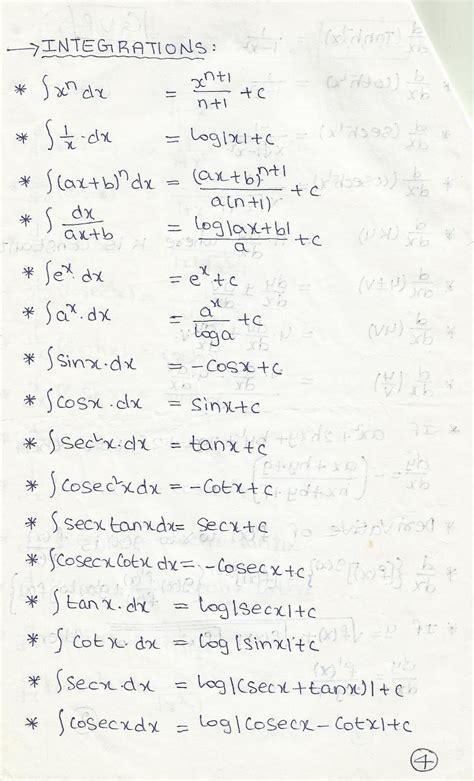 →INTEGRATIONS:
* ∫xⁿdx = xⁿ⁺¹/n+1 +c
* ∫1/x·dx = log|x|+c
* ∫(ax+b)ⁿdx = (ax+b)ⁿ⁺¹/a(n+1) +c
* ∫dx/ax+b = log|ax+b|/a +c
* ∫eˣ·dx = eˣ+c
* ∫aˣ·dx = aˣ/loga +c
* ∫sinx·dx = -cosx+c
* ∫cosx·dx = sinx+c
* ∫sec²x·dx = tanx+c
* ∫cosec²xdx = -cotx+c
* ∫secxtanxdx = secx+c
* ∫cosecxcotxdx = -cosecx+c
* ∫tanx·dx = log|secx|+c
* ∫cotx·dx = log|sinx|+c
* ∫secx·dx = log|(secx+tanx)|+c
* ∫cosecxdx = log|cosecx-cotx|+c
4